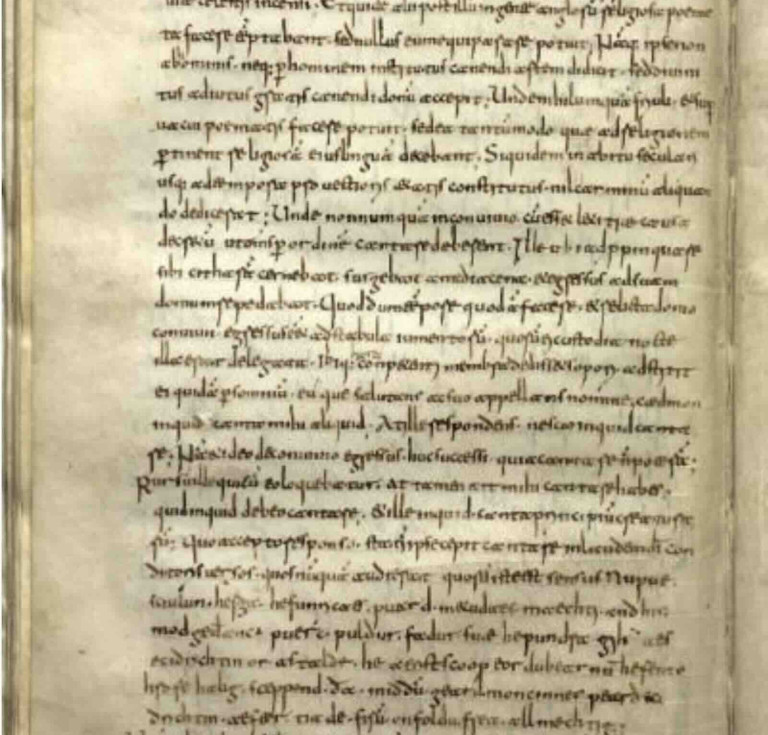 Et quidē alii post illum in gente anglorū religiosa poema
ta facere tēptabant. sed nullus eum equiparare potuit; Naq; ipse non
ab hominib. neq; ꝑ hominem institutus canendi artem didicit. sed divini
tus adiutus gratis canendi donū accepit; Unde nihil umquā frivoli. & sup
vacui poematis facere potuit. sed ea tantūmodo que ad religionem
ꝑtinent religiosā eius linguā decebant. Siquidem in abitu seculari
usq; ad tempora provectioris aetatis constitutus. nil carminū aliquan
do didicerat; Unde nonnumquā in convivio. cū esset letitię causa
decretū ut omīs ꝑ ordinē cantare deberent. Ille ubi adpropinquare
sibi citharā cernebat. surgebat a media cena. & egressus ad suam
domum repedabat. Quod dum tēpore quodā faceret. & relicta domo
convivii. egressus eēt ad stabula iumentorū. quorū ei custodia nocte
illa erat delegata. Ibiq; conpetenti membra dedisset sopori. adstitit
ei quidā ꝑ somniū. eūque salutans ac suo appellans nomine. caedmon
inquid canta mihi aliquid. At ille respondens. nescio inquid canta
re; Nā & ideo de convivio egressus. huc successi. quia cantare n̄ poterā;
Rursū ille qui cū eo loquebatur. at tamen ait mihi cantare habes.
quid inquid debeo cantare. & ille inquid. canta principiū creatura
rū; Quo accepto responso. statī ipse cepit cantare in laudem dī con
ditoris versos. quos nūquā audierat quorū iste est sensus Nu pue
sciulun. herga. hefunricaes. puard. metudaes maechti. and his
modgedanc. puerc. puldur. fadur sue he pundra gihuaes
eci drichtin or astalde. he aerist scoop eordu bearnū hefen to
hrofe halig. sceppend. da. middū geard moncinnes peard eci
drichtin. aefter. tia de. firū. on foldu. frea. allmechtig.